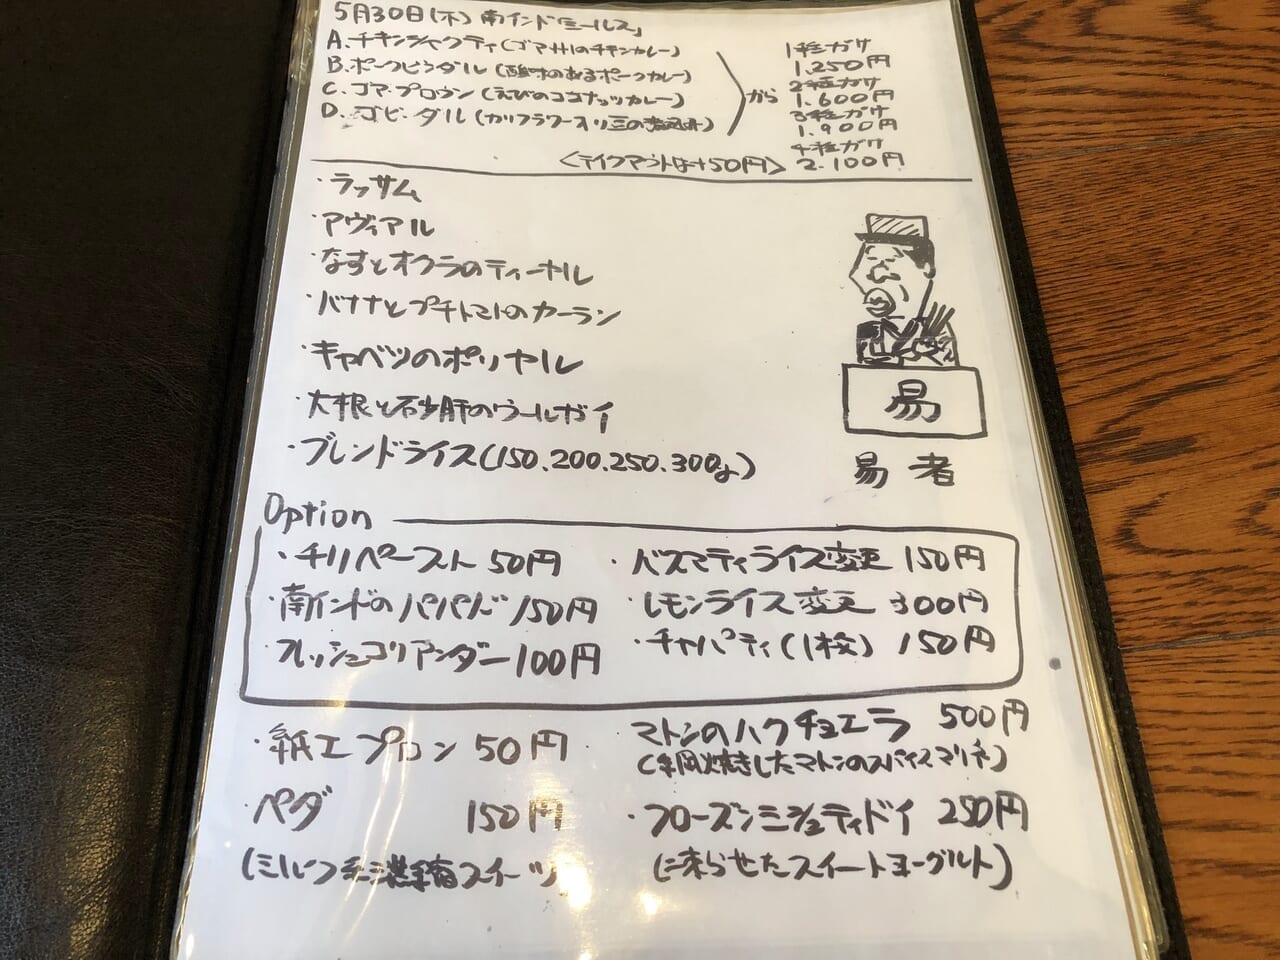 5月30日(木) 南インド「ミールス」
A.チキンシャクティ(ゴマ
チキンカレー)
B.ポークビンダル(酸味のあるポークカレー)
C.ゴア・プロウン(えびのココナッツカレー)
D.ゴビ・ダル(カリフラワー入り豆の煮込み)
から
1種がけ
1,250円
2種がけ
1.600円
3種がけ
1.900円
4種がけ
2.100円
<テイクアウトは+50円>
・ラッサム
・アヴィアル
・なすとオクラのティーヤル
・バナナとプチトマトのカーラン
・キャベツのポリヤル
・大根と砂肝のウールガイ
・ブレンドライス(150.200.250.300g)
易
易者
Option
・チリペースト 50円
・南インドのパパド 150円
フレッシュコリアンダー 100円
・バスマティライス変更 150円
・レモンライス変更 300円
・チャパティ(1枚) 150円
・紙エプロン 50円
・ペダ 150円
(ミルク
スイーツ)
・マトンのハクチョエラ 500円
(網焼きしたマトンのスパイスマリネ)
・フローズンミシュティドイ 250円
(凍らせたスイートヨーグルト)